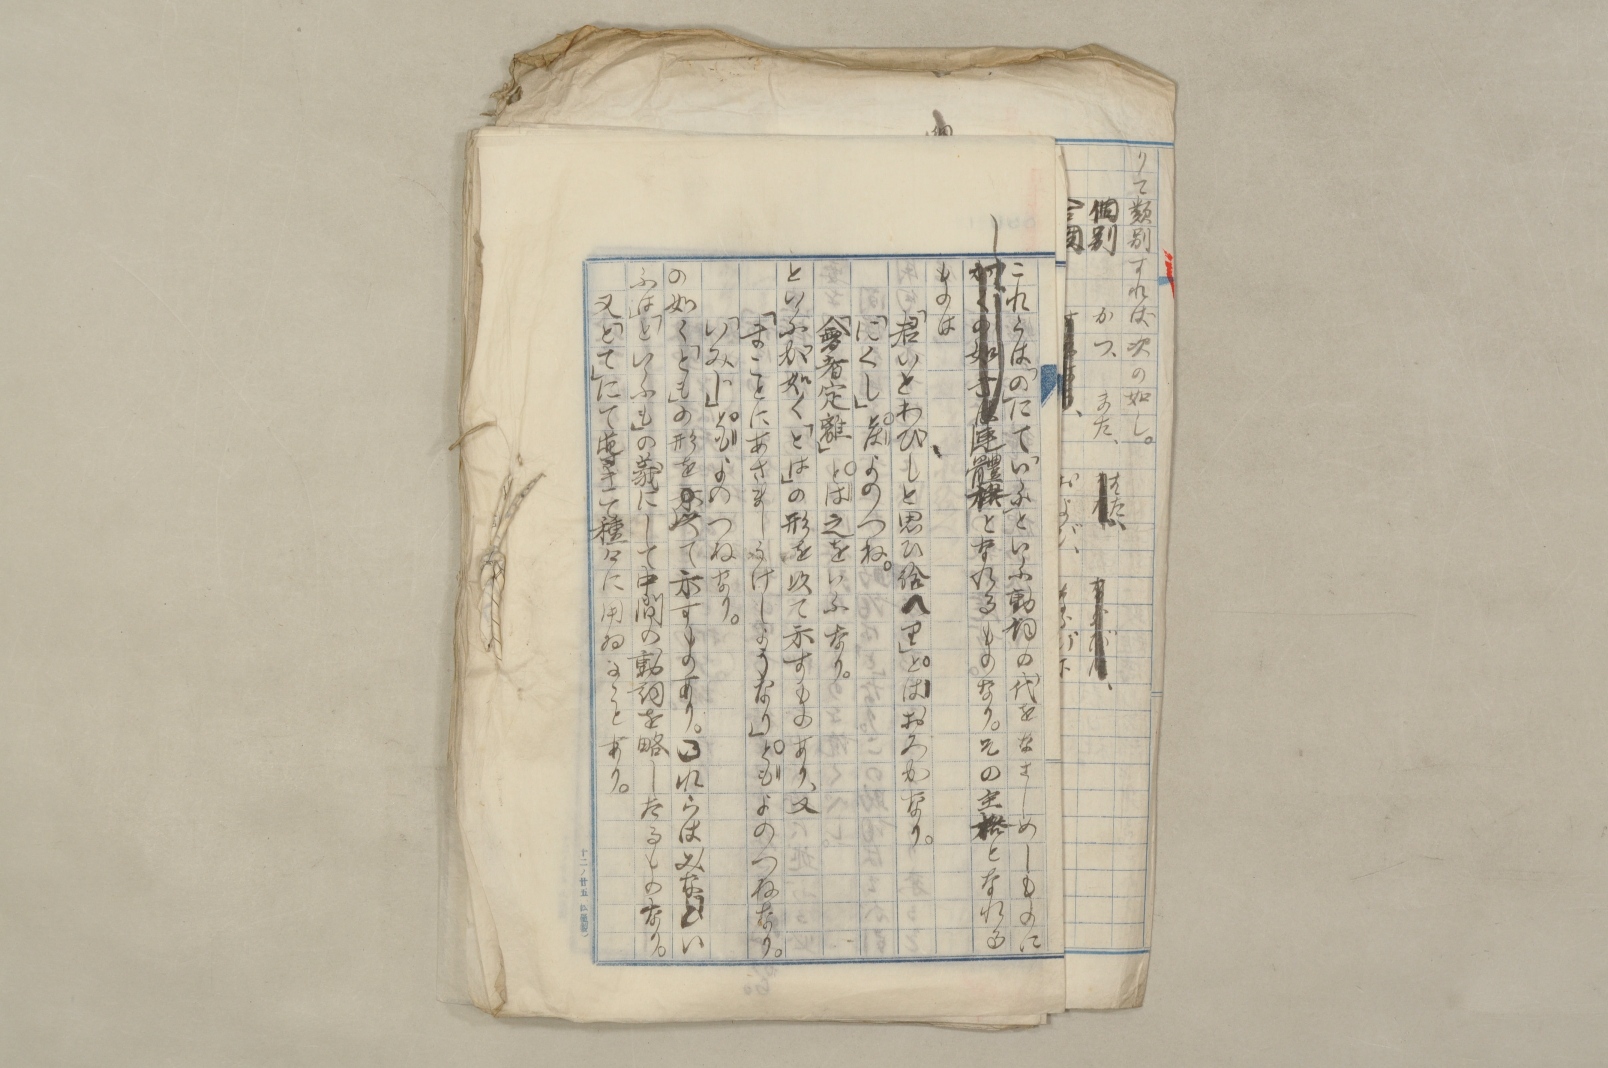 りて類別すれば次の如し。
個別　かつ、また、はた、
これらは「の」にて「いふ」といふ動詞の代をなさしめしものに
連體格となれるものなり。その主格となれる
ものは
「君いとわびしと思ひ給へり」とはおろかなり。
「にくし」とはよのつね。
「會者定離」とは之をいふなり。
といふが如く「とは」の形を以て示すものあり、又
「まことにあさましうけしようなり」ともよのつねなり。
「いみじ」ともよのつねなり。
の如く「とも」の形を以て示すものあり。これらはみな「とい
ふは」「といふも」の義にして中間の動詞を略したるものなり。
又「とて」にて導きて種々に用ゐることあり。